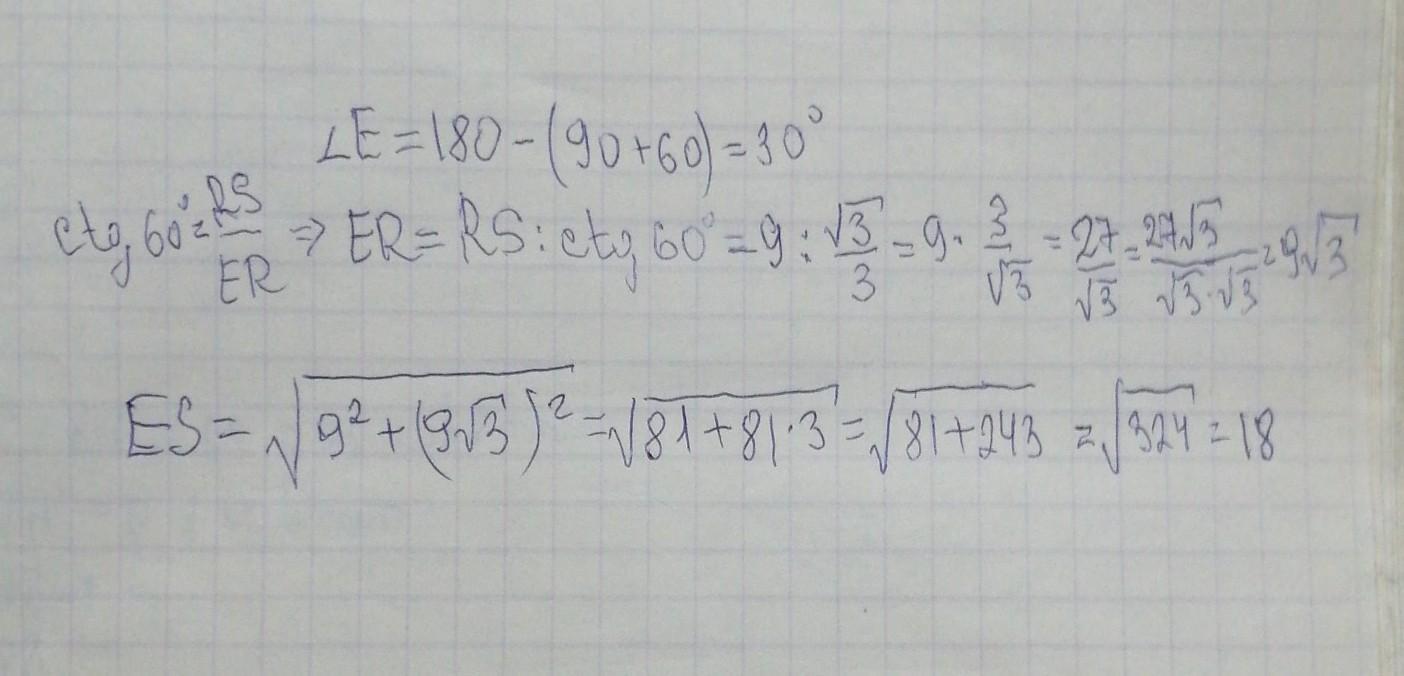 ∠E = 180 - (90 + 60) = 30°
ctg 60° = RS/ER ⇒ ER = RS : ctg 60° = 9 : √3/3 = 9 · 3/√3 = 27/√3 = 27√3/(√3·√3) = 9√3
ES = √(9² + (9√3)²) = √(81 + 81·3) = √(81 + 243) = √324 = 18